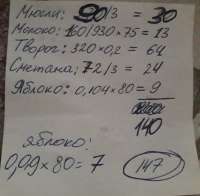 Мюсли: 90/3 = 30
Молоко: 160/930 × 75 = 13
Творог: 320 × 0,2 = 64
Сметана: 72/3 = 24
Яблоко: 0,104 × 80 = 9
140
яблоко:
0,09 × 80 = 7
147